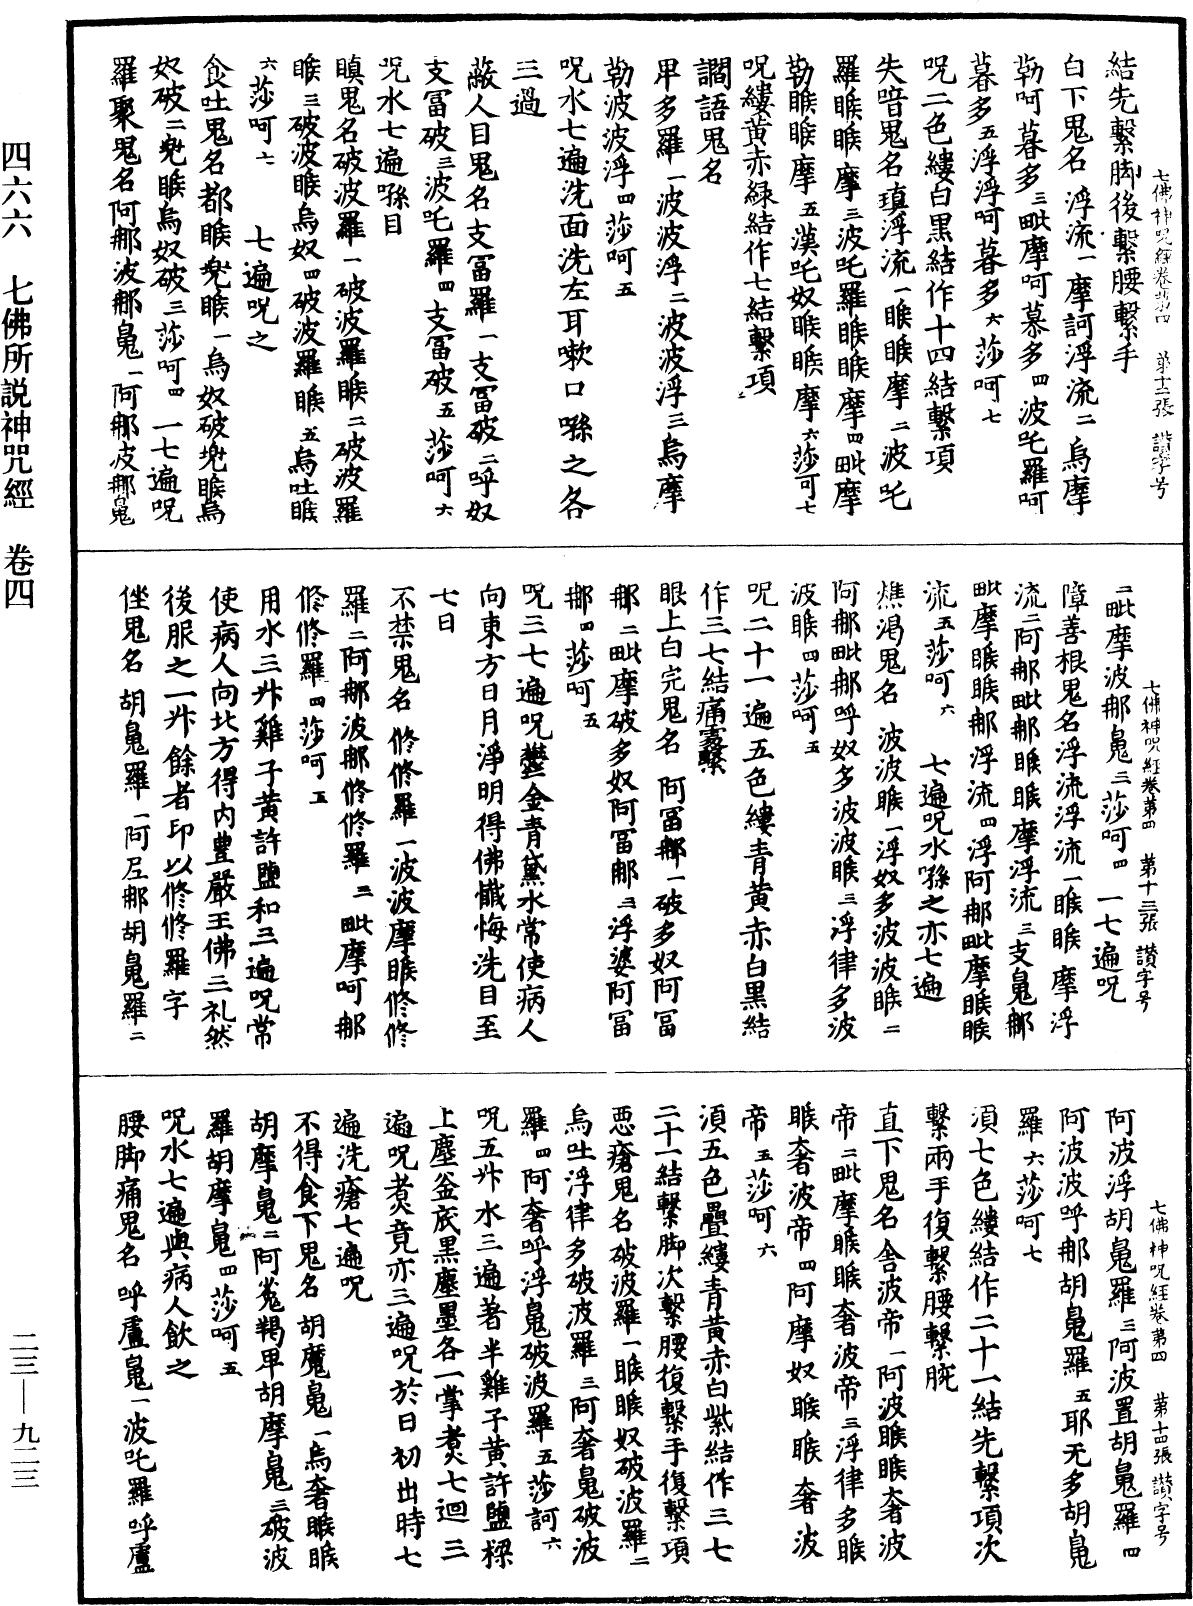 七佛神咒經卷第四　第十二張　讚字号
結先繫脚後繫腰繫手
白下鬼名　浮流一摩訶浮流二烏摩
勒呵暮多三毗摩呵慕多四波吒羅呵
暮多五浮浮呵暮多六莎呵七
呪二色縷白黑結作十四結繫項
失喑鬼名瑱浮流一睺睺摩二波吒
羅睺睺摩三波吒羅睺睺摩四毗摩
勒睺睺摩五漢吒奴睺睺摩六莎呵七
呪縷黄赤緑結作七結繫項
讇語鬼名
卑多羅一波波浮二波波浮三烏摩
勒波波浮四莎呵五
呪水七遍洗面洗左耳嗽口㗭之各
三過
蔽人目鬼名支冨羅一支冨破二呼奴
支冨破三波吒羅四支冨破五莎呵六
呪水七遍㗭目
瞋鬼名破波羅一破波羅睺二破波羅
睺三破波睺烏奴四破波羅睺五烏吐睺
六莎呵七　七遍呪之
食吐鬼名都睺兜睺一烏奴破兜睺烏
奴破二兜睺烏奴破三莎呵四　一七遍呪
羅聚鬼名阿那波那㲋一阿那波那㲋
七佛神咒經卷第四　第十三張　讚字号
二毗摩波那㲋三莎呵四　一七遍呪
障善根鬼名浮流浮流一睺睺摩浮
流二阿那毗那睺睺摩浮流三支㲋那
毗摩睺睺那浮流四浮阿那毗摩睺睺
流五莎呵六　七遍呪水㗭之亦七遍
燋渴鬼名　波波睺一浮奴多波波睺二
阿那毗那呼奴多波波睺三浮律多波
波睺四莎呵五
呪二十一遍五色縷青黄赤白黑結
作三七結痛䖏繫
眼上白完鬼名　阿冨那一破多奴阿冨
那二毗摩破多奴阿冨那三浮婆阿冨
那四莎呵五
呪三七遍呪鬱金青黛水常使病人
向東方日月淨明得佛懺悔洗目至
七日
不禁鬼名　修修羅一波波摩睺修修
羅二阿那波那修修羅三毗摩呵那
修修羅四莎呵五
用水三升雞子黄許鹽和三遍呪常
使病人向北方得内豊嚴王佛三礼然
後服之一升餘者印以修修羅字
㘴鬼名　胡㲋羅一阿㞐那胡㲋羅二
七佛神咒經卷第四　第十四張　讚字号
阿波浮胡㲋羅三阿波置胡㲋羅四
阿波波呼那胡㲋羅五耶无多胡㲋
羅六莎呵七
湏七色縷結作二十一結先繫項次
繫兩手復繫腰繫腕
直下鬼名舍波帝一阿波睺睺奢波
帝二毗摩睺睺奢波帝三浮律多睺
睺奢波帝四阿摩奴睺睺奢波
帝五莎呵六
湏五色疊縷青黄赤白紫結作三七
二十一結繫脚次繫腰復繫手復繫項
悪瘡鬼名破波羅一睺睺奴破波羅二
烏吐浮律多破波羅三阿奢㲋破波
羅四阿奢呼浮㲋破波羅五莎訶六
呪五升水三遍著半雞子黄許鹽樑
上塵釡底黒塵墨各一掌煑七迴三
遍呪煑竟亦三遍呪於日初出時七
遍洗瘡七遍呪
不得食下鬼名　胡魔㲋一烏奢睺睺
胡摩㲋二阿㝹羯卑胡摩㲋三破波
羅胡摩㲋四莎呵五
呪水七遍與病人飲之
腰脚痛鬼名　呼盧㲋一波吒羅呼盧
四六六　七佛所説神咒經　卷四
二三—九二三